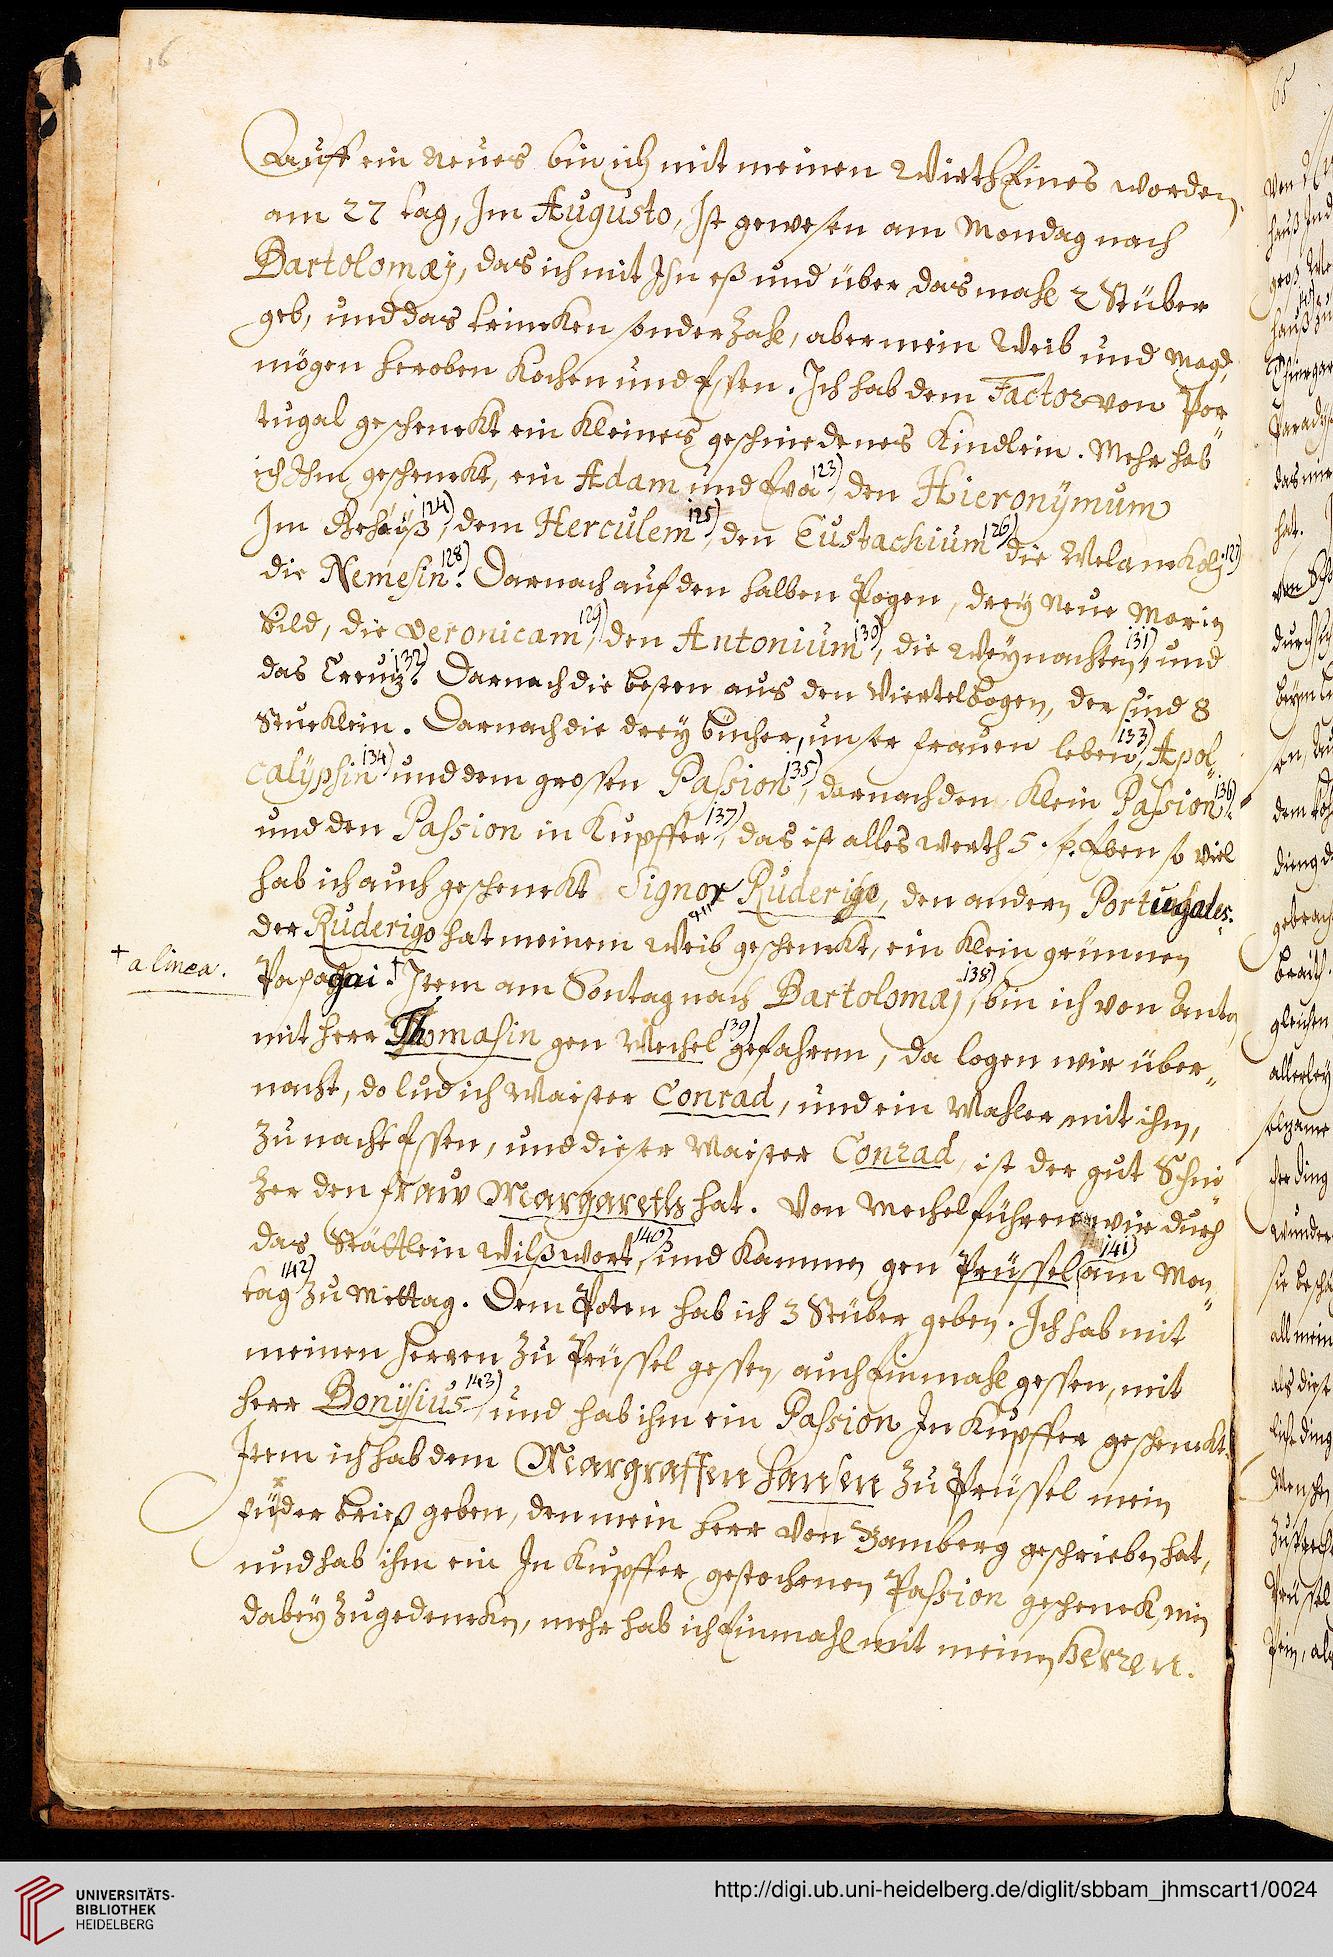 16
Auff ein Neues bin ich mit meinen Wirth Eines worden,
am 27 tag, Im Augusto, Ist gewesen am Mondag nach
Bartolomæj, das ich mit Ihn eß und über das mahl 2 Stüber
geb, und das trincken sonder Zahl, aber mein Weib und Magd,
mögen heroben Kochen und Essen. Ich hab dem Factor von Por„
tugal geschenckt ein Kleines geschniedenes Kindlein. Mehr hab
ich Ihm geschenckt, ein Adam und Eva 123), den Hieronÿmum
Im Gehäuß 124), dem Herculem 125), den Eustachium 126) die Melanckolj 127)
die Nemesin 128). Darnach auf den halben Pogen, drey Neue Marien
bild, die Veronicam 129), den Antonium 130), die Weynachten 131), und
das Creutz 132). Darnach die besten aus den Viertelbogen, der sind 8
Stucklein. Darnach die drey bücher, unser frauen leben 133), Apo„
calÿpsin 134) und dem grossen Passion 135), darnach den Klein Passion 136).
und den Passion in Kupffer 137), das ist alles werth 5. f. Eben so viel
hab ich auch geschenckt Signor Ruderigo, den andern Portugales.
der Ruderigo hat meinem Weib geschenckt, ein Klein grünnen
† a linea.
Papagai. † Item am Sontag nach Bartolomæj 138), bin ich von Antor,
mit herr Thomasin gen Mechel 139) gefahrnn, da logen wir über„
nacht, do lud ich Maister Conrad, und ein Mahler mit ihm,
zu nacht Essen, und dieser Maister Conrad, ist der gut Schni„
zer den fraw Margareth hat. Von Mechel führen wir durch
das Stättlein Wilßwort 140), und Kammen gen Prüssel, am Mon„ 141)
tag 142) zu Mittag. Dem Poten hab ich 3 Stüber geben. Ich hab mit
meinen Herren Zu Prüssel gessen, auch Einmahl gessen, mit
herr Bonÿsius 143), und hab ihm ein Passion In Kupffer geschenckt.
Item ich hab dem Margraffen Hansen zu Prüssel mein
füder brieff geben, den mein herr von Bamberg geschrieben hat,
und hab ihm ein In Kupffer gestochenen Passion geschenck, min
dabey zu gedencken, mehr hab ich Einmahl mit meinen Herren.
UNIVERSITÄTS-
BIBLIOTHEK
HEIDELBERG
http://digi.ub.uni-heidelberg.de/diglit/sbbam_jhmscart1/0024